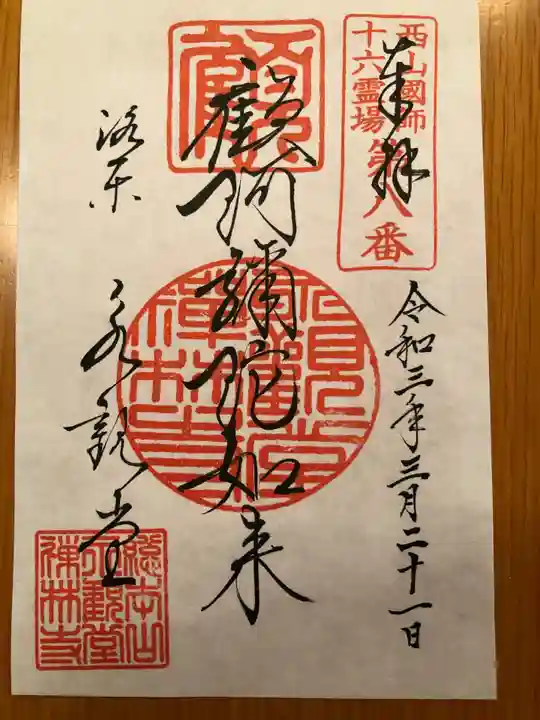 西山國師
十六霊場
第八番
奉拝
令和三年三月二十一日
顧阿彌陀如来
洛東
永観堂
總本山
永觀堂
禅林寺